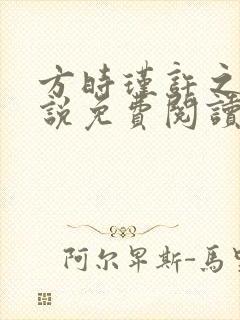 方時瑾許之
説免費閱讀
阿尔卑斯-馬